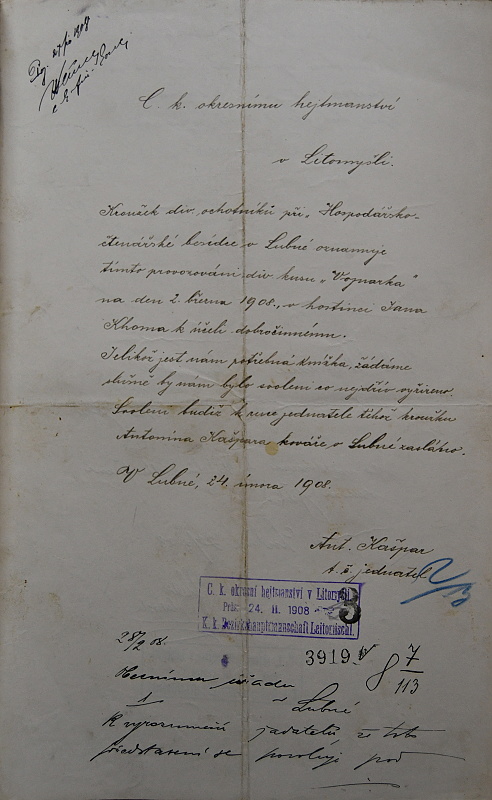 C. k. okresnímu hejtmanství
v Litomyšli.
Kroužek div. ochotníků při „Hospodářsko-
čtenářské besídce v Lubné oznamuje
tímto provozování div. kusu „Vojnarka"
na den 2. března 1908, v hostinci Jana
Khoma k účeli dobročinnému.
Jelikož jest nám potřebná knížka, žádáme
slušně by nám bylo svolení co nejdřív vyřízeno.
Svolení budiž k ruce jednatele téhož kroužku
Antonína Kašpara kováře, v Lubné zasláno.
V Lubné, 24. února 1908.
Ant. Kašpar
t. č. jednatel
C. k. okresní hejtmanství v Litomyšli
Präs. 24. II. 1908
K. k. Bezirkshauptmannschaft Leitomischl.
3
3919
8 7/113
28/2 08.
úřadu
Lubné
k vyrozumění žadatelů, že toto
představení se povoluje pod